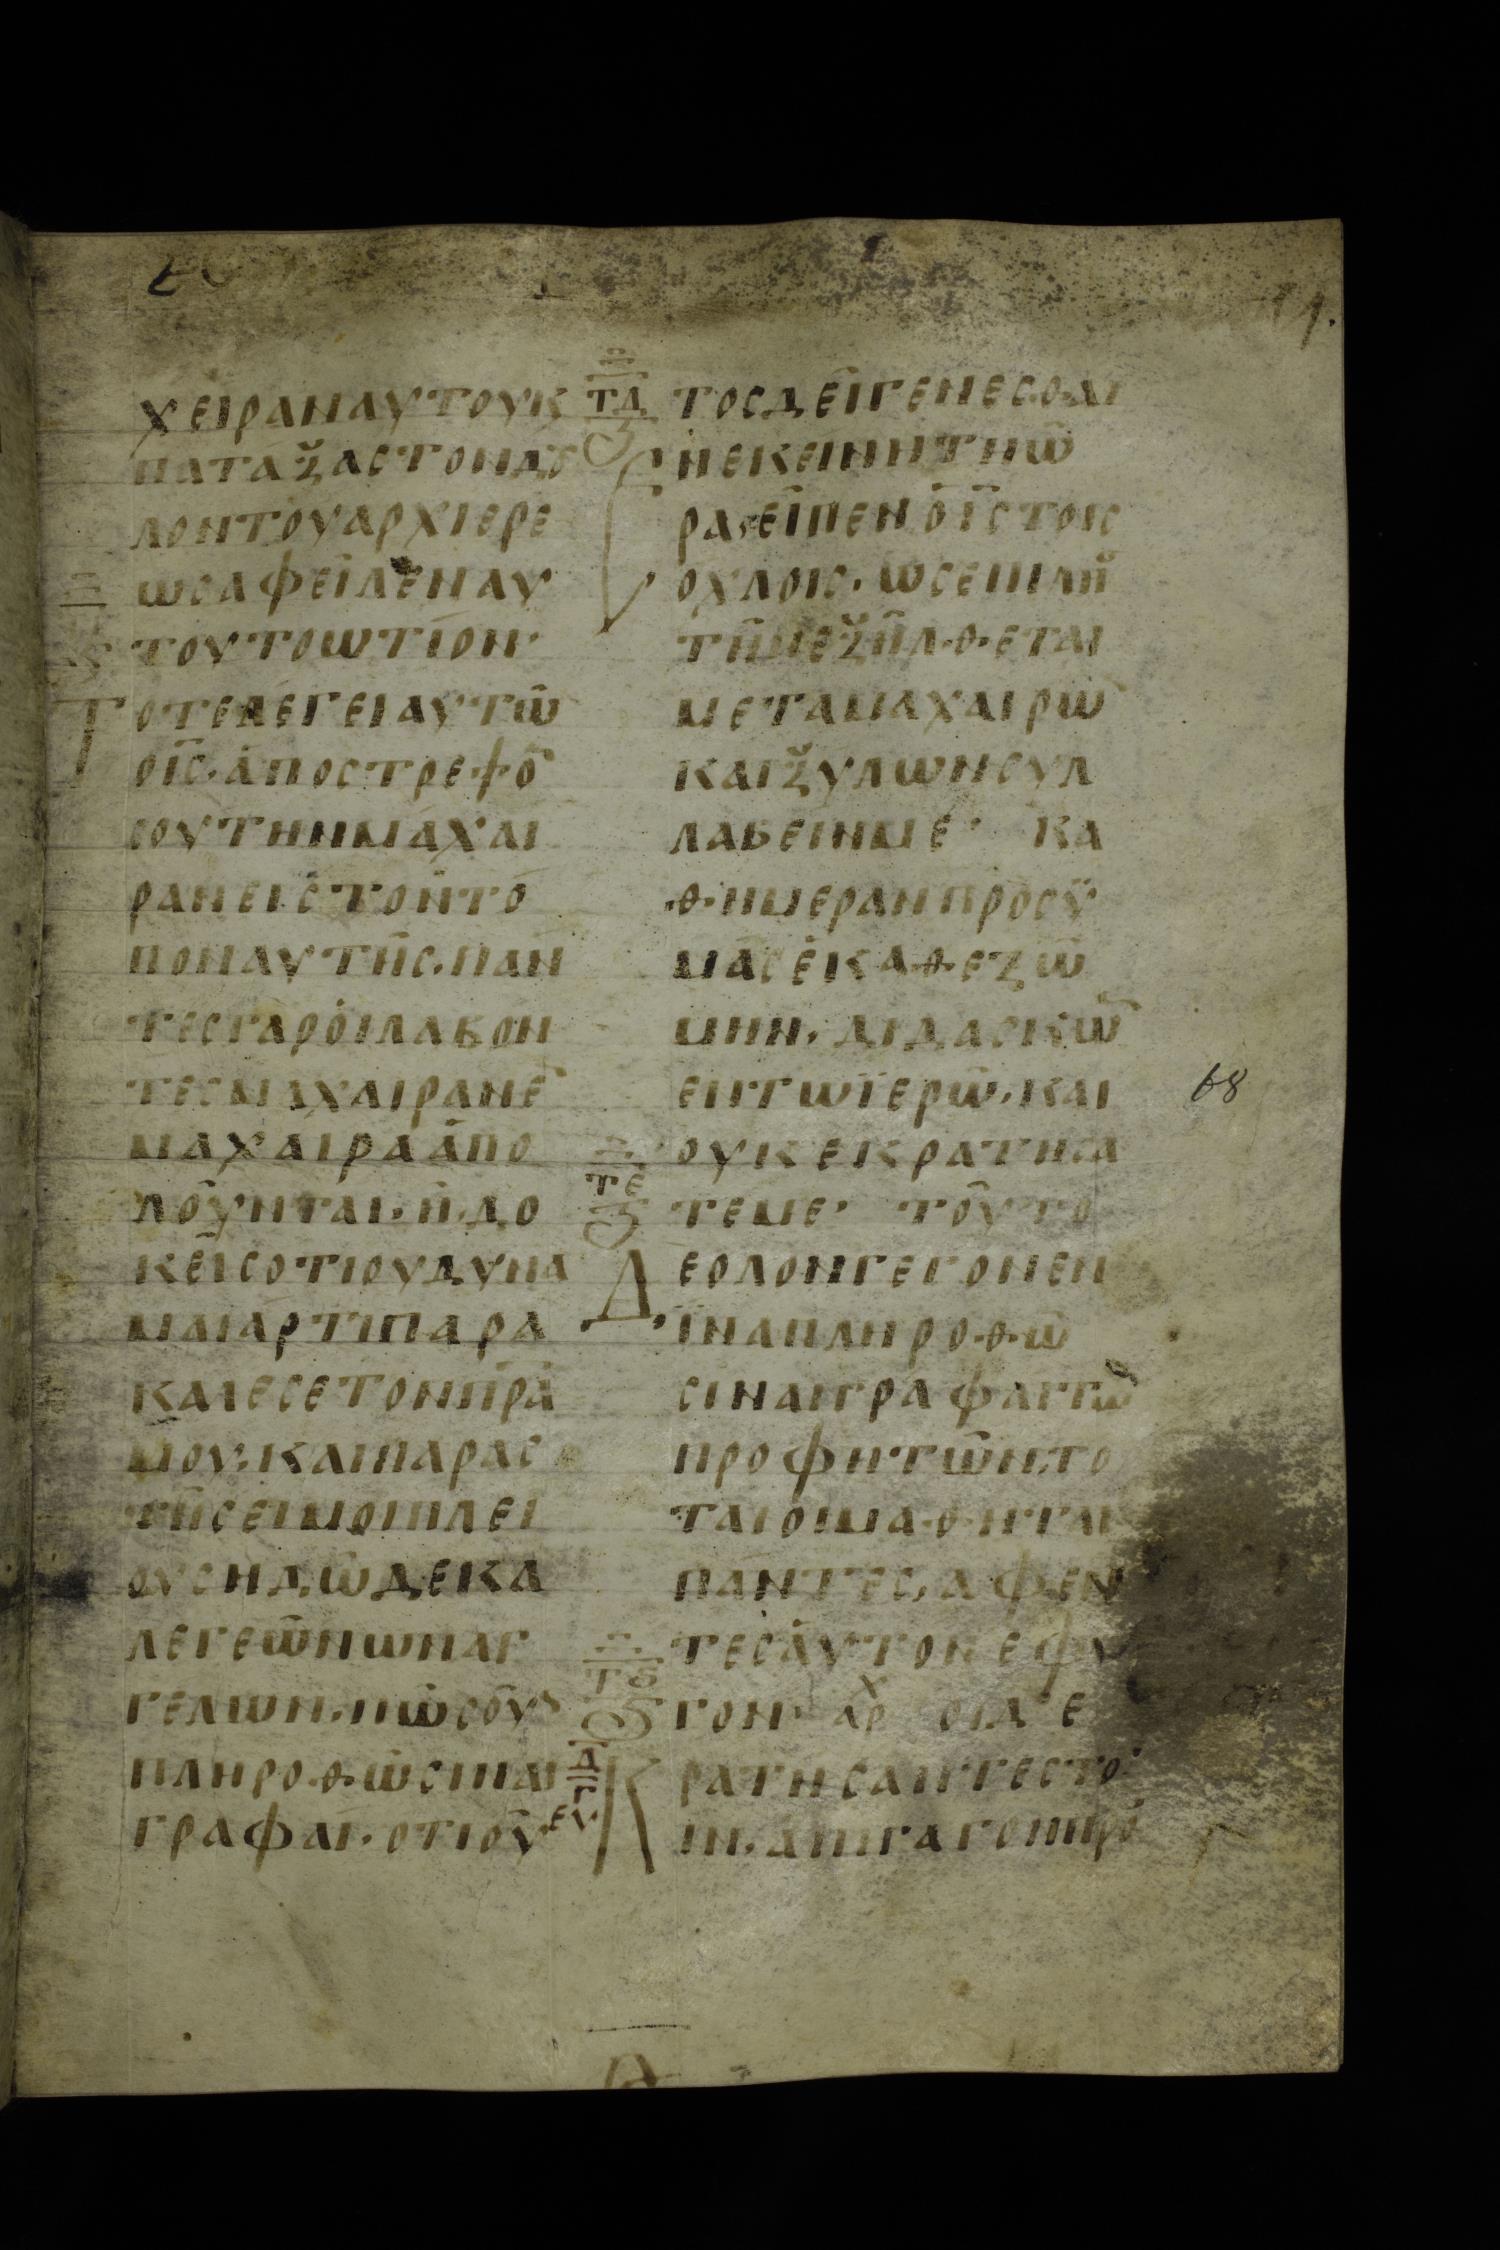 ΧΕΙΡΑΝΑΥΤΟΥΚ
ΠΑΤΑΞΑΣΤΟΝΔΟΥ
ΛΟΝΤΟΥΑΡΧΙΕΡΕ
ΩΣΑΦΕΙΛΕΝΑΥ
ΤΟΥΤΟΩΤΙΟΝ·
ΤΟΤΕΛΕΓΕΙΑΥΤΩ
ΟΙΣ·ΑΠΟΣΤΡΕΨΟ
ΣΟΥΤΗΝΜΑΧΑΙ
ΡΑΝΕΙΣΤΟΝΤΟ
ΠΟΝΑΥΤΗΣ·ΠΑΝ
ΤΕΣΓΑΡΟΙΛΑΒΟΝ
ΤΕΣΜΑΧΑΙΡΑΝΕ
ΜΑΧΑΙΡΑΑΠΟ
ΛΟΥΝΤΑΙ·Η·ΔΟ
ΚΕΙΣΟΤΙΟΥΔΥΝΑ
ΜΑΙΑΡΤΙΠΑΡΑ
ΚΑΛΕΣΕΤΟΝΠΡΑ
ΜΟΥ·ΚΑΙΠΑΡΑΣ
ΤΗΣΕΙΜΟΙΠΛΕΙ
ΟΥΣΗΔΩΔΕΚΑ
ΛΕΓΕΩΝΩΝΑΓ
ΓΕΛΩΝ·ΠΩΣΟΥ
ΠΛΗΡΟΘΩΣΙΝΑΙ
ΓΡΑΦΑΙ·ΟΤΙΟΥ
ΤΔ
ΤΟΣΔΕΙΓΕΝΕΣΘΑΙ
ΕΝΕΚΕΙΝΗΤΗΩ
ΡΑΕΙΠΕΝΟΙΣΤΟΙΣ
ΟΧΛΟΙΣ·ΩΣΕΠΙΛΗ
ΤΗΝΕΞΗΛΘΕΤΑΙ
ΜΕΤΑΜΑΧΑΙΡΩ
ΚΑΙΞΥΛΩΝΣΥΛ
ΛΑΒΕΙΝΜΕ· ΚΑ
ΘΗΜΕΡΑΝΠΡΟΣΫ
ΜΑΣΕΚΑΘΕΖΩ
ΜΗΝ·ΔΙΔΑΣΚΩ
ΕΝΤΩΪΕΡΩ·ΚΑΙ
68
ΟΥΚΕΚΡΑΤΗΣΑ
ΤΕ
ΤΕΜΕ· ΤΟΥΤΟ
ΔΕΟΛΟΝΓΕΓΟΝΕΝ
ΪΝΑΠΛΗΡΟΘΩ
ΣΙΝΑΙΓΡΑΦΑΙΤΩ
ΠΡΟΦΗΤΩΝ·ΤΟ
ΤΑΙΟΙΜΑΘΗΤΑΙ
ΠΑΝΤΕΣ·ΑΦΕΝ
ΤΕΣΑΥΤΟΝΕΦΥ
ΤϚ
ΓΟΝ· ΑΡΧ ΟΙΔΕ
ΚΡΑΤΗΣΑΝΤΕΣΤΟ
ΙΝ·ΑΠΗΓΑΓΟΝΠΡΟ